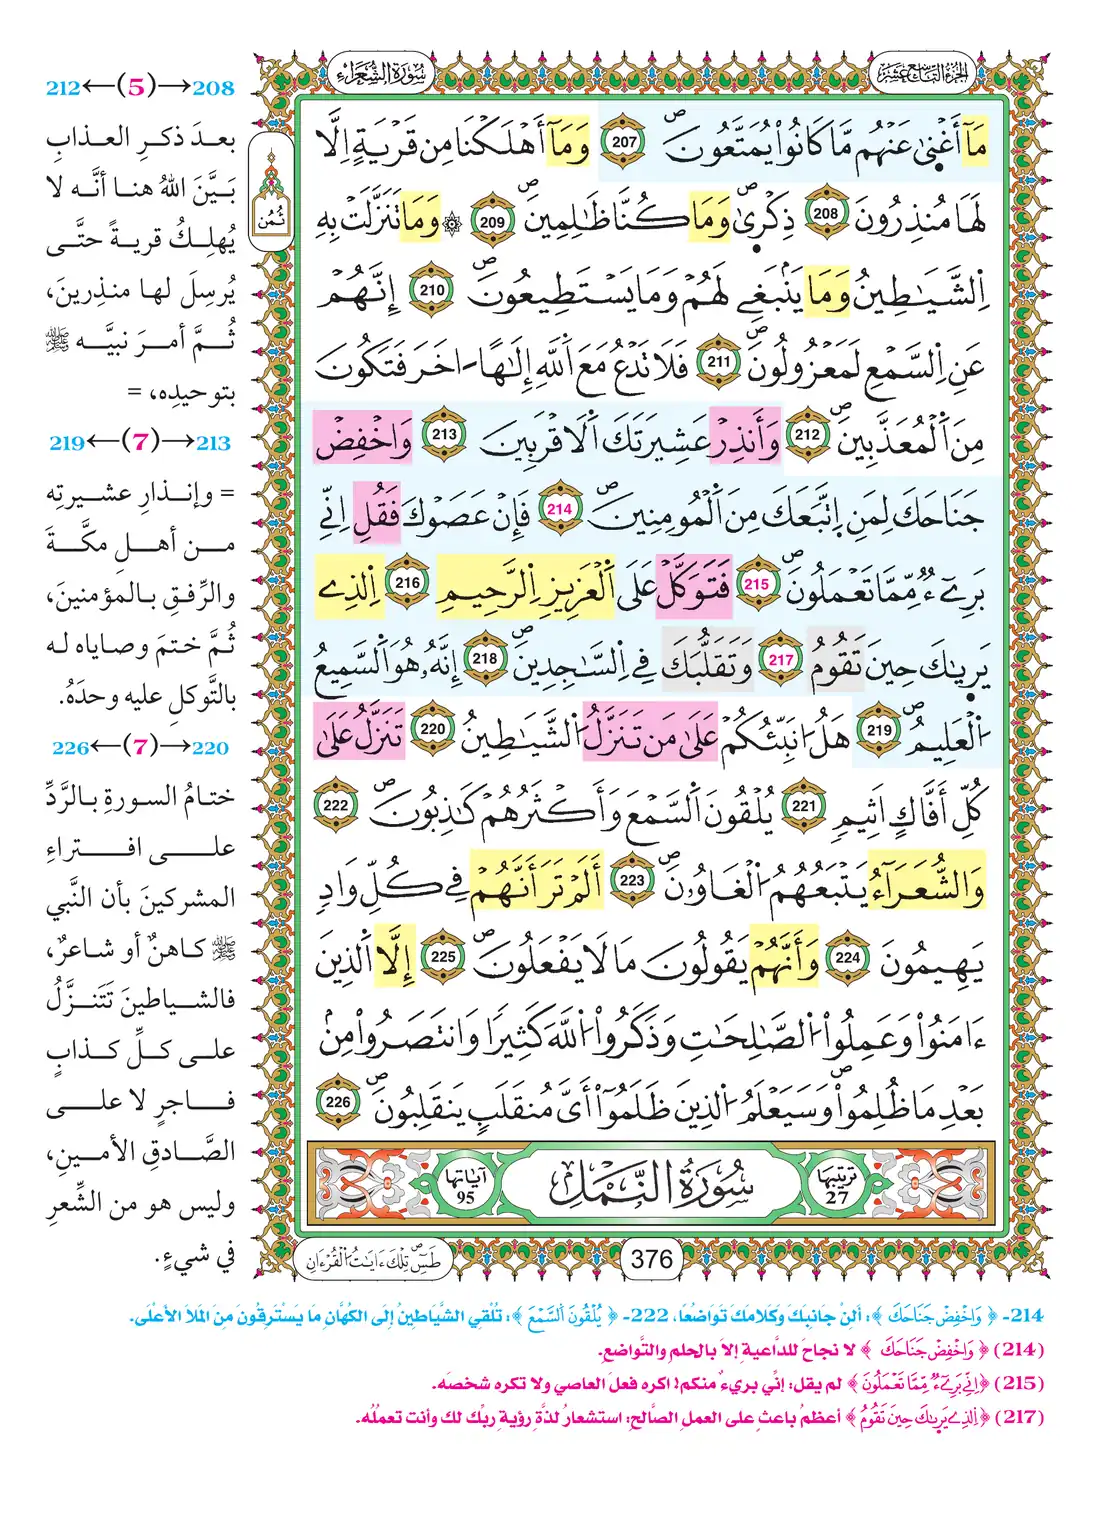 الجزء التاسع عشر
سورة الشعراء
مَآ أَغْنىٰ عَنْهُم مَّا كَانُواْ يُمَتَّعُونَۖ 207 وَمَآ أَهْلَكْنَا مِن قَرْيَةٍ اِلَّا
لَهَا مُنذِرُونَ 208 ذِكْرىٰۖ وَمَا كُنَّا ظَٰلِمِينَۖ 209 ۞ وَمَا تَنَزَّلَتْ بِهِ
اِ۬لشَّيَٰطِينُ وَمَا يَنۢبَغِے لَهُمْ وَمَا يَسْتَطِيعُونَۖ 210 إِنَّهُمْ
عَنِ اِ۬لسَّمْعِ لَمَعْزُولُونَۖ 211 فَلَا تَدْعُ مَعَ اَ۬للَّهِ إِلَٰهاً اٰخَرَ فَتَكُونَ
مِنَ اَ۬لْمُعَذَّبِينَۖ 212 وَأَنذِرْ عَشِيرَتَكَ اَ۬لَاقْرَبِينَ 213 وَاخْفِضْ
جَنَاحَكَ لِمَنِ اِ۪تَّبَعَكَ مِنَ اَ۬لْمُومِنِينَۖ 214 فَإِنْ عَصَوْكَ فَقُلِ اِنِّے
بَرِےٓءٌ مِّمَّا تَعْمَلُونَۖ 215 فَتَوَكَّلْ عَلَى اَ۬لْعَزِيزِ اِ۬لرَّحِيمِ 216 اِ۬لذِے
يَر۪يٰكَ حِينَ تَقُومُ 217 وَتَقَلُّبَكَ فِے اِ۬لسَّٰجِدِينَۖ 218 إِنَّهُۥ هُوَ اَ۬لسَّمِيعُ
اُ۬لْعَلِيمُۖ 219 هَلُ ا۟نَبِّئُكُمْ عَلَىٰ مَن تَنَزَّلُ اُ۬لشَّيَٰطِينُ 220 تَنَزَّلُ عَلَىٰ
كُلِّ أَفَّاكٍ اَثِيمٖ 221 يُلْقُونَ اَ۬لسَّمْعَ وَأَكْثَرُهُمْ كَٰذِبُونَۖ 222
وَالشُّعَرَآءُ يَتْبَعُهُمُ اُ۬لْغَاوُۥنَۖ 223 أَلَمْ تَرَ أَنَّهُمْ فِے كُلِّ وَادٖ
يَهِيمُونَ 224 وَأَنَّهُمْ يَقُولُونَ مَا لَا يَفْعَلُونَۖ 225 إِلَّا اَ۬لذِينَ
ءَامَنُواْ وَعَمِلُواْ اُ۬لصَّٰلِحَٰتِ وَذَكَرُواْ اُ۬للَّهَ كَثِيراً وَانتَصَرُواْ مِنۢ
بَعْدِ مَا ظُلِمُواْۖ وَسَيَعْلَمُ اُ۬لذِينَ ظَلَمُوٓاْ أَيَّ مُنقَلَبٖ يَنقَلِبُونَۖ 226
ترتيبها 27
سُورَةُ النَّمْلِ
آياتها 95
376
طَسِٓۖ تِلْكَ ءَايَٰتُ اُ۬لْقُرْءَانِ
ثُمُن
208→(5)←212
بعدَ ذكرِ العذابِ
بَيَّنَ اللهُ هنا أنَّه لا
يُهلِكُ قريةً حتَّى
يُرسِلَ لها منذِرينَ،
ثُمَّ أمرَ نبيَّه ﷺ
بتوحيدِه، =
213→(7)←219
= وإنذارِ عشيرتِه
من أهلِ مكَّةَ
والرِّفقِ بالمؤمنينَ،
ثُمَّ ختمَ وصاياه له
بالتَّوكلِ عليه وحدَهُ.
220→(7)←226
ختامُ السورةِ بالرَّدِّ
على افتراءِ
المشركينَ بأن النَّبي
ﷺ كاهنٌ أو شاعرٌ،
فالشياطينَ تَتَنزَّلُ
على كلِّ كذابٍ
فاجرٍ لا على
الصَّادقِ الأمينِ،
وليس هو من الشِّعرِ
في شيءٍ.
214- ﴿وَاخْفِضْ جَنَاحَكَ﴾: ألِنْ جَانِبَكَ وَكَلامَكَ تَوَاضُعًا، 222- ﴿يُلْقُونَ اَ۬لسَّمْعَ﴾: تُلْقِي الشَّيَاطِينُ إلَى الكُهَّانِ مَا يَسْتَرِقُونَ مِنَ المَلَأ الأعْلَى.
(214) ﴿وَاخْفِضْ جَنَاحَكَ﴾ لا نجاحَ للدَّاعيةِ إلا بالحلم والتَّواضع.
(215) ﴿اِنِّے بَرِےٓءٌ مِّمَّا تَعْمَلُونَ﴾ لم يقل: إنِّي بريءٌ منكم! اكره فعلَ العاصي ولا تكره شخصَه.
(217) ﴿اِ۬لذِے يَر۪يٰكَ حِينَ تَقُومُ﴾ أعظمُ باعثٍ على العملِ الصَّالحِ: استشعارُ لذَّةِ رؤيةِ ربِّك لك وأنت تعملُه.